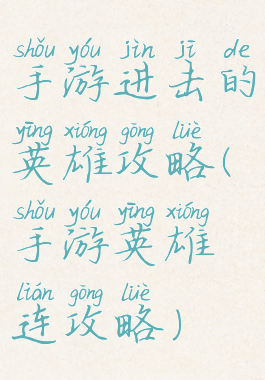 shǒu yóu jìn jī de
手游进击的
yīng xióng gōng lüè
英雄攻略(
shǒu yóu yīng xióng
手游英雄
lián gōng lüè
连攻略)